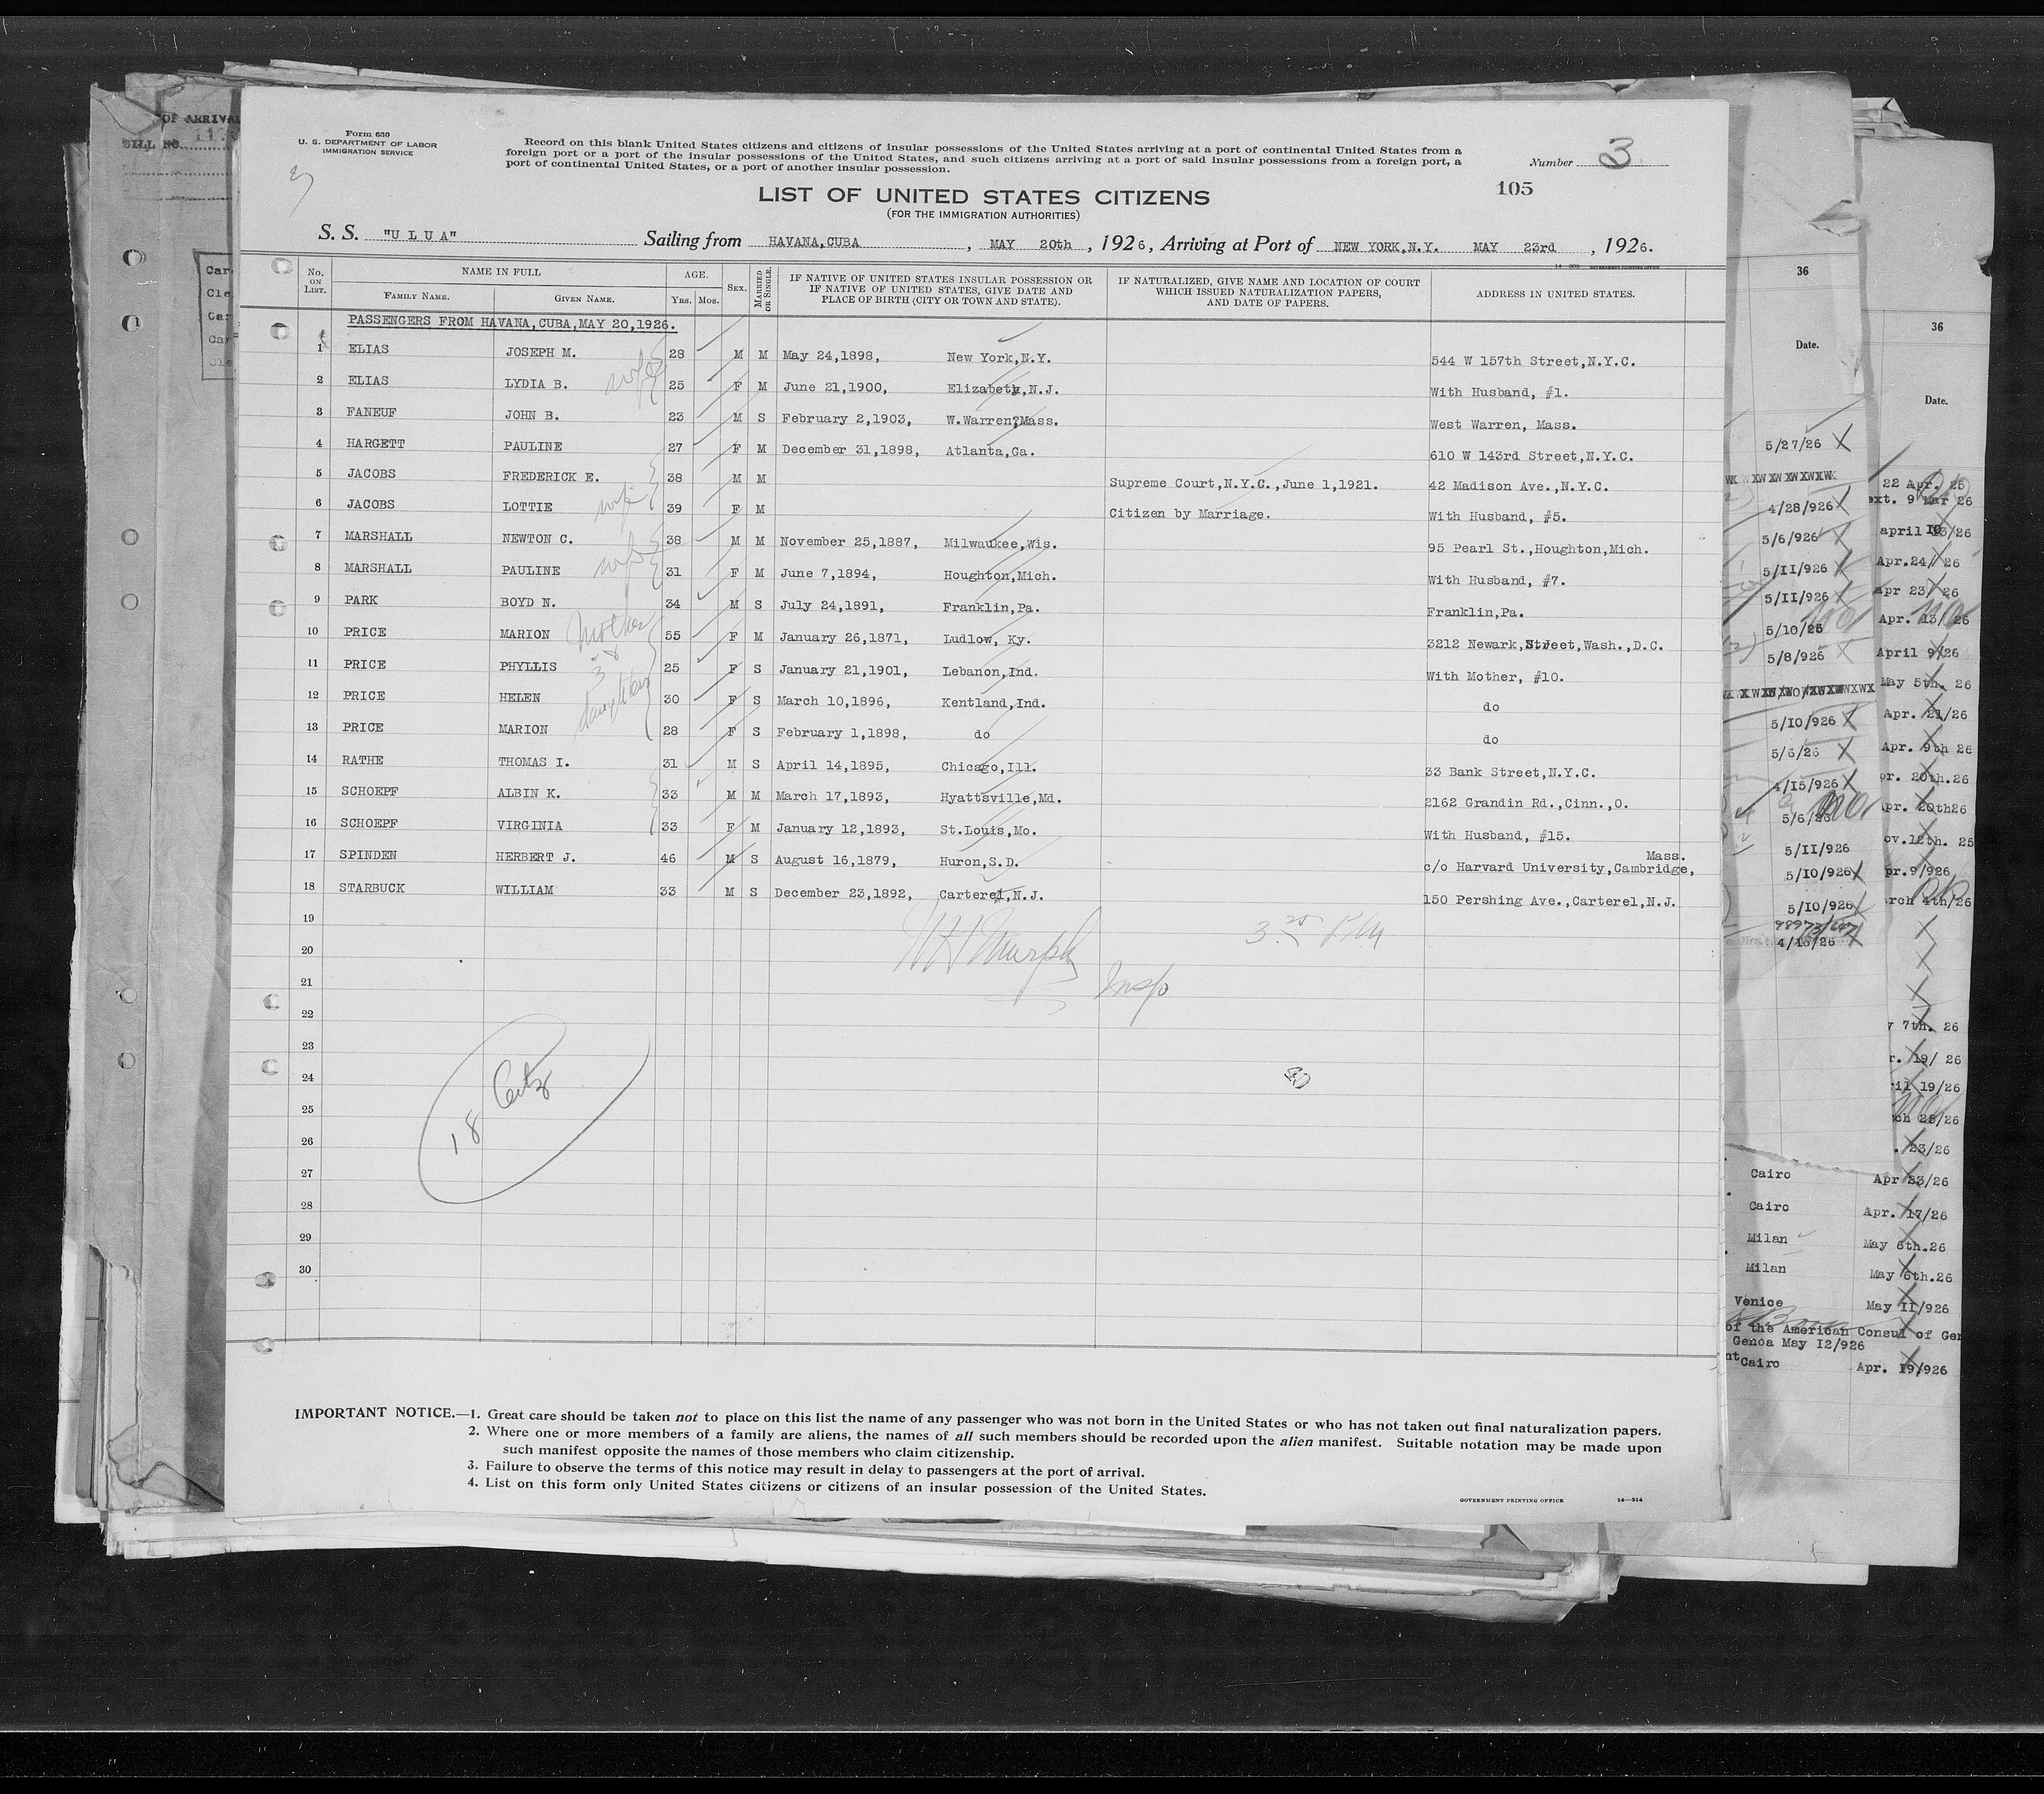 Form 630
U. S. DEPARTMENT OF LABOR
IMMIGRATION SERVICE
Record on this blank United States citizens and citizens of insular possessions of the United States arriving at a port of continental United States from a
foreign port or a port of the insular possessions of the United States, and such citizens arriving at a port of said insular possessions from a foreign port, a
port of continental United States, or a port of another insular possession.
Number 3
105
LIST OF UNITED STATES CITIZENS
(FOR THE IMMIGRATION AUTHORITIES)
S. S. "U L U A" Sailing from HAVANA,CUBA, MAY 20th, 1926, Arriving at Port of NEW YORK,N.Y. MAY 23rd, 1926.
No. ON LIST. NAME IN FULL FAMILY NAME. GIVEN NAME. AGE. Yrs. Mos. SEX. MARRIED OR SINGLE. IF NATIVE OF UNITED STATES INSULAR POSSESSION OR IF NATIVE OF UNITED STATES, GIVE DATE AND PLACE OF BIRTH (CITY OR TOWN AND STATE). IF NATURALIZED, GIVE NAME AND LOCATION OF COURT WHICH ISSUED NATURALIZATION PAPERS, AND DATE OF PAPERS. ADDRESS IN UNITED STATES.
PASSENGERS FROM HAVANA,CUBA,MAY 20,1926.
1 ELIAS JOSEPH M. 28 M M May 24,1898, New York,N.Y. 544 W 157th Street,N.Y.C.
2 ELIAS LYDIA B. wife 25 F M June 21,1900, Elizabeth,N.J. With Husband, #1.
3 FANEUF JOHN B. 23 M S February 2,1903, W.Warren,Mass. West Warren, Mass.
4 HARGETT PAULINE 27 F M December 31,1898, Atlanta,Ga. 610 W 143rd Street,N.Y.C.
5 JACOBS FREDERICK E. 38 M M Supreme Court,N.Y.C.,June 1,1921. 42 Madison Ave.,N.Y.C.
6 JACOBS LOTTIE wife 39 F M Citizen by Marriage. With Husband, #5.
7 MARSHALL NEWTON C. 38 M M November 25,1887, Milwaukee,Wis. 95 Pearl St.,Houghton,Mich.
8 MARSHALL PAULINE wife 31 F M June 7,1894, Houghton,Mich. With Husband, #7.
9 PARK BOYD N. 34 M S July 24,1891, Franklin,Pa. Franklin,Pa.
10 PRICE MARION Mother 55 F M January 26,1871, Ludlow, Ky. 3212 Newark,Street,Wash.,D.C.
11 PRICE PHYLLIS 3 25 F S January 21,1901, Lebanon,Ind. With Mother, #10.
12 PRICE HELEN daughters 30 F S March 10,1896, Kentland,Ind. do
13 PRICE MARION 28 F S February 1,1898, do do
14 RATHE THOMAS I. 31 M S April 14,1895, Chicago,Ill. 33 Bank Street,N.Y.C.
15 SCHOEPF ALBIN K. 33 M M March 17,1893, Hyattsville,Md. 2162 Grandin Rd.,Cinn.,O.
16 SCHOEPF VIRGINIA 33 F M January 12,1893, St.Louis,Mo. With Husband, #15.
17 SPINDEN HERBERT J. 46 M S August 16,1879, Huron,S.D. c/o Harvard University,Cambridge, Mass.
18 STARBUCK WILLIAM 33 M S December 23,1892, Carterel,N.J. 150 Pershing Ave.,Carterel,N.J.
19
20
21
22
23
24
25
26
27
28
29
30
Murphy
Insp
18 Citz
IMPORTANT NOTICE.—1. Great care should be taken not to place on this list the name of any passenger who was not born in the United States or who has not taken out final naturalization papers.
2. Where one or more members of a family are aliens, the names of all such members should be recorded upon the alien manifest. Suitable notation may be made upon
such manifest opposite the names of those members who claim citizenship.
3. Failure to observe the terms of this notice may result in delay to passengers at the port of arrival.
4. List on this form only United States citizens or citizens of an insular possession of the United States.
GOVERNMENT PRINTING OFFICE 14—914
36
Date.
5/27/26
4/28/926
5/6/926
5/11/926
5/11/926
5/10/26
5/8/926
5/10/926
5/6/26
4/15/926
5/6/26
5/11/926
5/10/926
5/10/926
4/16/26
36
Date.
22 Apr. 25
ext. 9 Mar 26
Apr.24/ 26
Apr 23/ 26
Apr. 13/ 26
April 9/26
May 5th. 26
Apr. 21/26
Apr. 9th 26
pr. 20th.26
Apr. 20th26
ov.12th. 25
pr.9/926
rch 4th/26
7th. 26
r. 19/ 26
ril 19/26
. 23/26
Cairo Apr 23/26
Cairo Apr. 17/26
Milan May 6th.26
Milan May 6th.26
Venice May 11/926
of the American Consul of Gen
Genoa May 12/926
Cairo Apr. 19/926